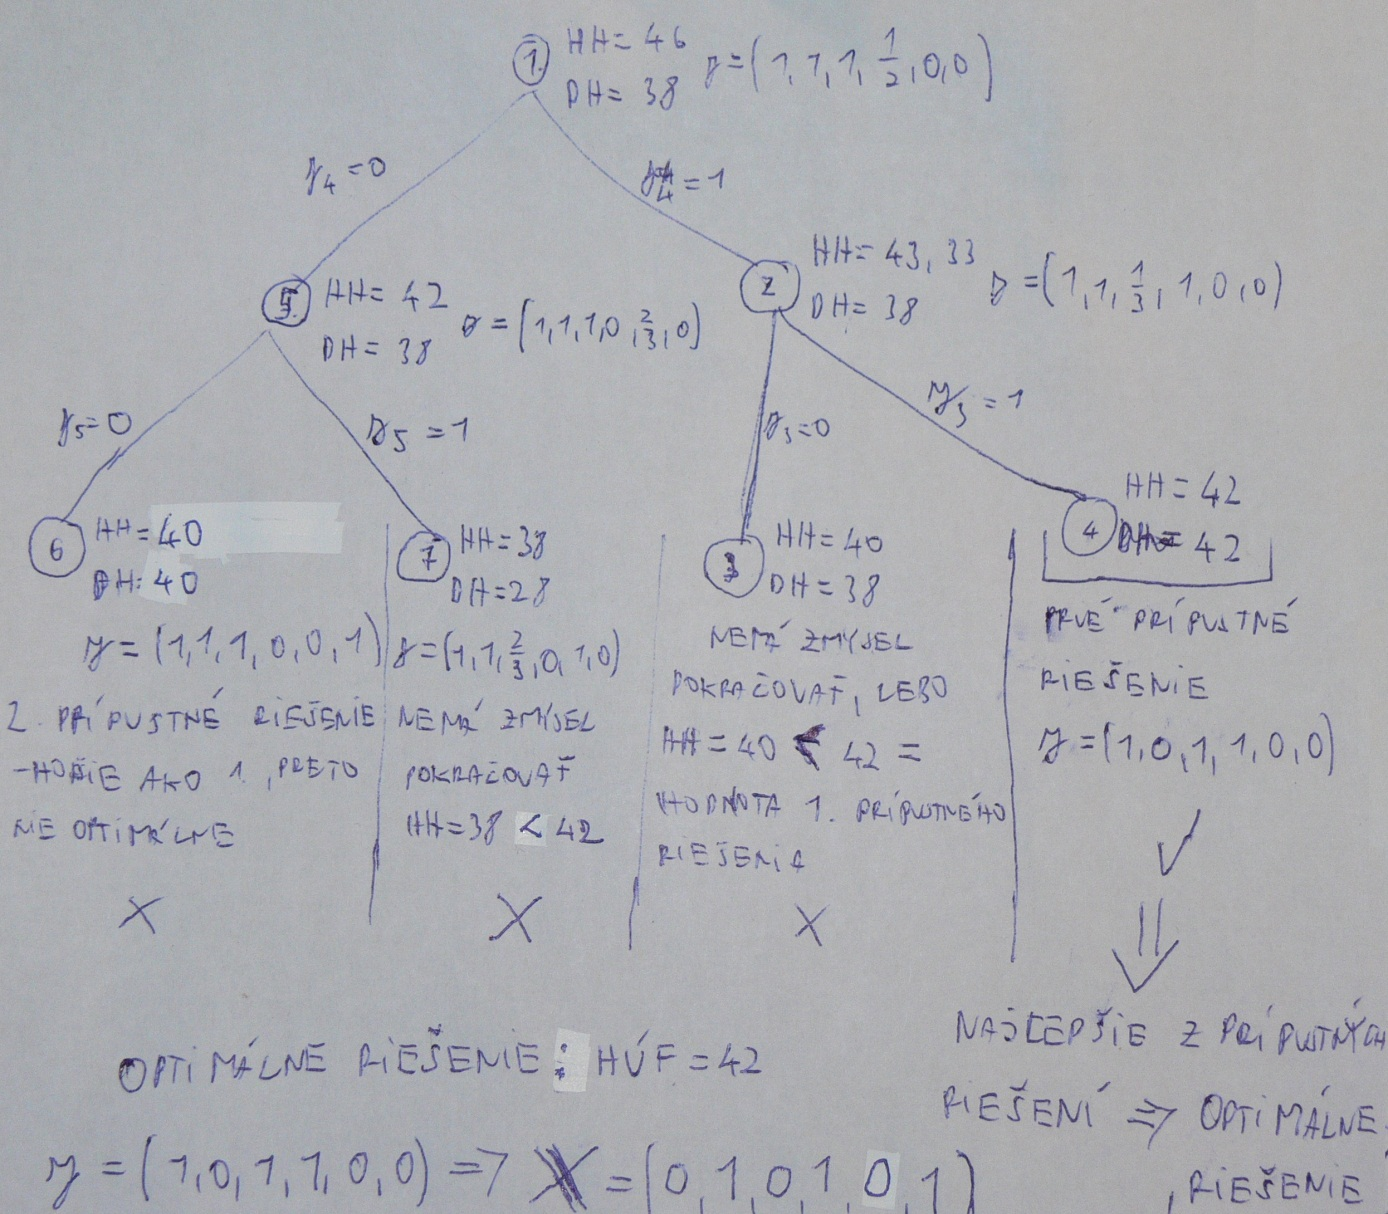 1. HH= 46
DH= 38 y=(1,1,1,1/2,0,0)
y4=0
y4=1
5. HH= 42
DH= 38 y=(1,1,1,0,2/3,0)
2 HH= 43,33
DH= 38 y=(1,1,1/3,1,0,0)
y5=0
y5=1
y3=0
y3=1
6 HH=40
DH: 40
y=(1,1,1,0,0,1)
2. PRÍPUSTNÉ RIEŠENIE
-HORŠIE AKO 1., PRETO
NIE OPTIMÁLNE
X
7 HH=38
DH=28
y=(1,1,2/3,0,1,0)
NEMÁ ZMYSEL
POKRAČOVAŤ
HH=38 < 42
X
3 HH=40
DH=38
NEMÁ ZMYSEL
POKRAČOVAŤ, LEBO
HH=40 < 42 =
HODNOTA 1. PRÍPUSTNÉHO
RIEŠENIA
X
4 HH=42
DH= 42
PRVÉ PRÍPUSTNÉ
RIEŠENIE
y=(1,0,1,1,0,0)
✓
⇓
NAJLEPŠIE Z PRÍPUSTNÝCH
RIEŠENÍ => OPTIMÁLNE
RIEŠENIE
OPTIMÁLNE RIEŠENIE: HÚF=42
y=(1,0,1,1,0,0) => X=(0,1,0,1,0,1)